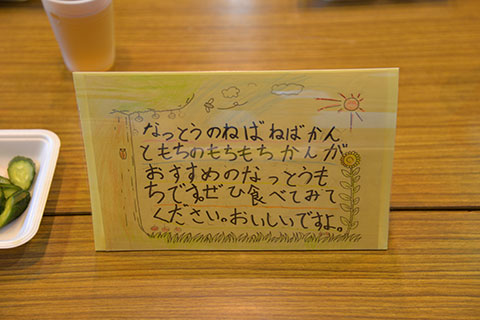 なっとうのねばねばかん
ともちのもちもちかんが
おすすめのなっとうも
ちです。ぜひ食べてみて
ください。おいしいですよ。